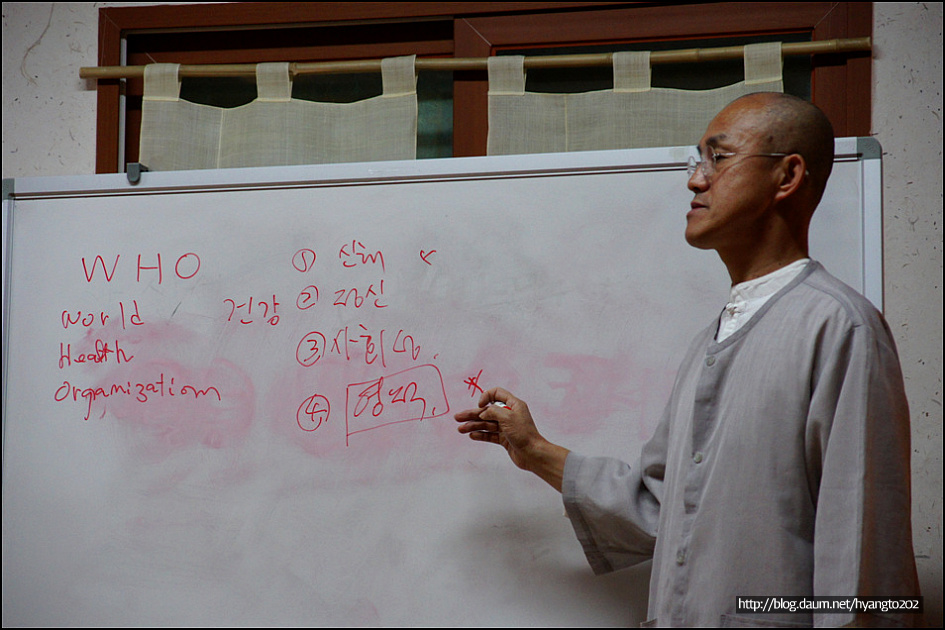 WHO
World
Health
Organization
건강
① 신체
② 정신
③ 사회적.
④ 영적.
http://blog.daum.net/hyangto202